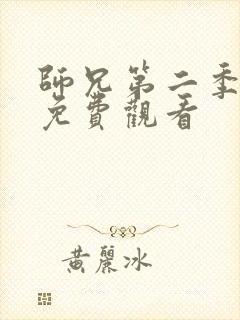 師兄第二季
免費觀看
黃麗冰